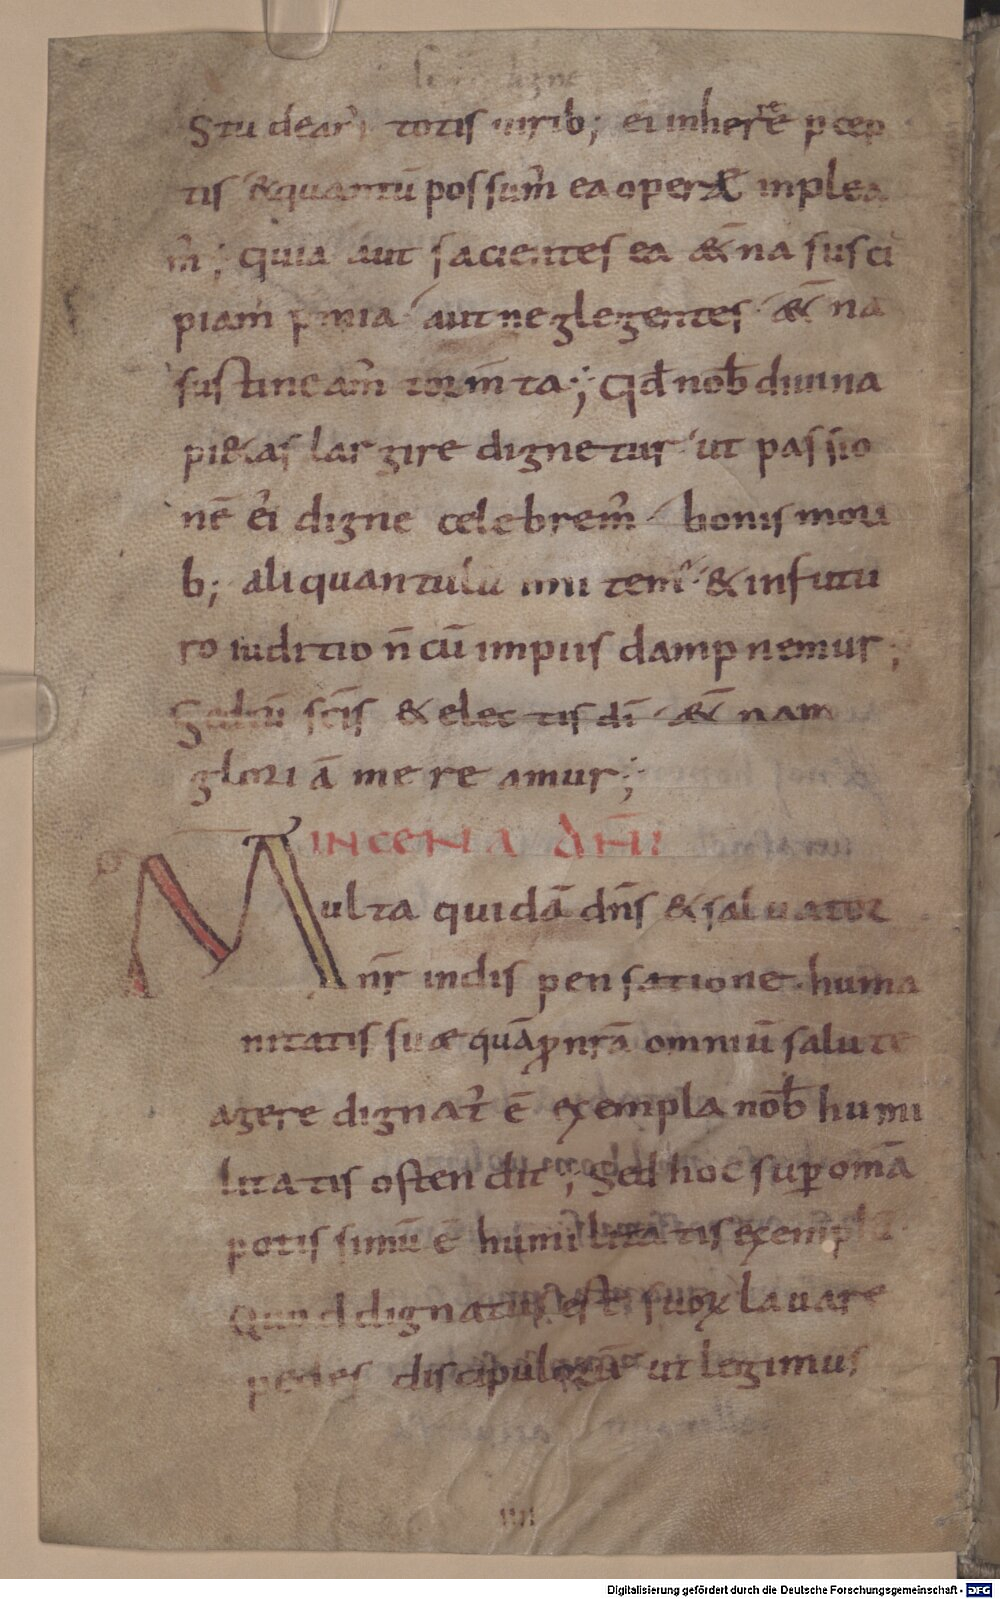 Studeam᷒ totis uirib; ei inherere p̄cep
tis &quantū possum᷒ ea opere inplea
m᷒; quia aut facientes ea æt̄na susci
piam᷒ p̄mia aut neglegentes æt̄na
sustineam᷒ torm̄ta; Qd̄ nob̄ diuina
pi&as largire dignetur ut passio
nē ei᷒ digne celebrem᷒ bonis mori
b; aliquantulū inui tem᷒ & infutu
ro iuditio n̄ cū impiis dampnemur;
Sed cū sc̄is & electis dī æt̄nam
gloriā mereamur;
IN CENA DN̄I
Multa quidā dn̄s & saluator
nr̄ indispensatione huma
nitatis suæ quā ꝓ nr̄ā omniū salute
agere dignat᷒ ē exempla nob̄ humi
litatis ostendit; Sed hoc suꝑ omā
potissimū ē humilitatis exempla
Quod dignatus est suoꝝ lauare
pedes discipuloꝝ ut legimus
IIII
Digitalisierung gefördert durch die Deutsche Forschungsgemeinschaft - DFG